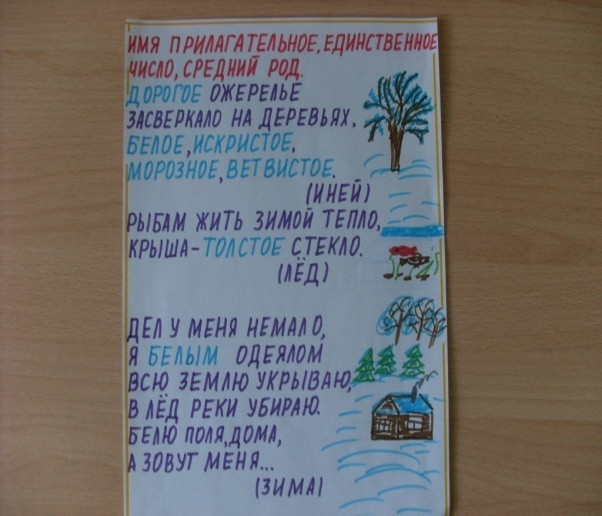 ИМЯ ПРИЛАГАТЕЛЬНОЕ, ЕДИНСТВЕННОЕ
ЧИСЛО, СРЕДНИЙ РОД.
ДОРОГОЕ ОЖЕРЕЛЬЕ
ЗАСВЕРКАЛО НА ДЕРЕВЬЯХ.
БЕЛОЕ, ИСКРИСТОЕ,
МОРОЗНОЕ, ВЕТВИСТОЕ.
(ИНЕЙ)
РЫБАМ ЖИТЬ ЗИМОЙ ТЕПЛО,
КРЫША-ТОЛСТОЕ СТЕКЛО.
(ЛЁД)
ДЕЛ У МЕНЯ НЕМАЛО,
Я БЕЛЫМ ОДЕЯЛОМ
ВСЮ ЗЕМЛЮ УКРЫВАЮ,
В ЛЁД РЕКИ УБИРАЮ.
БЕЛЮ ПОЛЯ, ДОМА,
А ЗОВУТ МЕНЯ...
(ЗИМА)